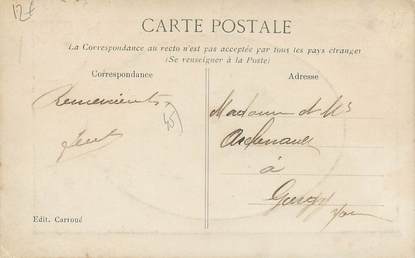 12€
CARTE POSTALE
La Correspondance au recto n'est pas acceptée par tous les pays étrangers
(Se renseigner à la Poste)
Correspondance
Adresse
Remerciements
45
Madame et Mr
à
Edit. Carroué